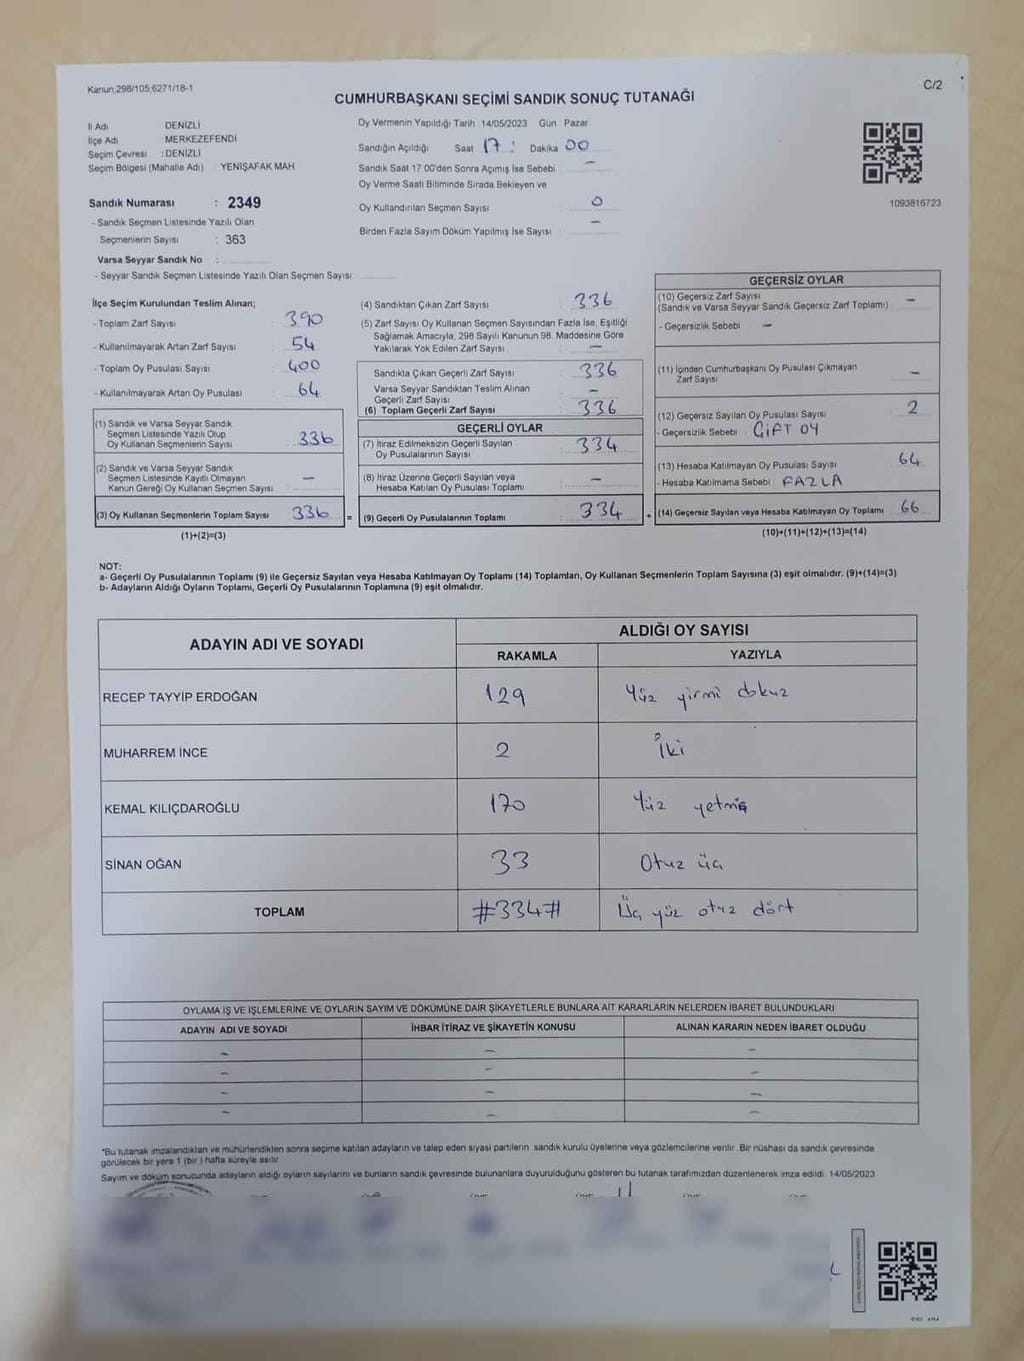 Kanun;298/105;6271/18-1
C/2
CUMHURBAŞKANI SEÇİMİ SANDIK SONUÇ TUTANAĞI
İl Adı DENİZLİ
İlçe Adı MERKEZEFENDİ
Seçim Çevresi : DENİZLİ
Seçim Bölgesi (Mahalle Adı) YENİŞAFAK MAH
Sandık Numarası : 2349
- Sandık Seçmen Listesinde Yazılı Olan
Seçmenlerin Sayısı : 363
Varsa Seyyar Sandık No :
- Seyyar Sandık Seçmen Listesinde Yazılı Olan Seçmen Sayısı
Oy Vermenin Yapıldığı Tarih 14/05/2023 Gün Pazar
Sandığın Açıldığı Saat 17 : Dakika 00
Sandık Saat 17:00'den Sonra Açımış İse Sebebi –
Oy Verme Saati Bitiminde Sırada Bekleyen ve
Oy Kullandırılan Seçmen Sayısı 0
Birden Fazla Sayım Döküm Yapılmış İse Sayısı –
1093816723
İlçe Seçim Kurulundan Teslim Alınan;
- Toplam Zarf Sayısı : 390
- Kullanılmayarak Artan Zarf Sayısı : 54
- Toplam Oy Pusulası Sayısı : 400
- Kullanılmayarak Artan Oy Pusulası : 64
(1) Sandık ve Varsa Seyyar Sandık
Seçmen Listesinde Yazılı Olup
Oy Kullanan Seçmenlerin Sayısı : 336
(2) Sandık ve Varsa Seyyar Sandık
Seçmen Listesinde Kayıtlı Olmayan
Kanun Gereği Oy Kullanan Seçmen Sayısı –
(3) Oy Kullanan Seçmenlerin Toplam Sayısı 336
(1)+(2)=(3)
(4) Sandıktan Çıkan Zarf Sayısı : 336
(5) Zarf Sayısı Oy Kullanan Seçmen Sayısından Fazla İse, Eşitliği
Sağlamak Amacıyla, 298 Sayılı Kanunun 98. Maddesine Göre
Yakılarak Yok Edilen Zarf Sayısı –
Sandıkta Çıkan Geçerli Zarf Sayısı : 336
Varsa Seyyar Sandıktan Teslim Alınan
Geçerli Zarf Sayısı –
(6) Toplam Geçerli Zarf Sayısı : 336
GEÇERLİ OYLAR
(7) İtiraz Edilmeksizin Geçerli Sayılan
Oy Pusulalarının Sayısı : 334
(8) İtiraz Üzerine Geçerli Sayılan veya
Hesaba Katılan Oy Pusulası Toplamı : –
= (9) Geçerli Oy Pusulalarının Toplamı : 334
GEÇERSİZ OYLAR
(10) Geçersiz Zarf Sayısı
(Sandık ve Varsa Seyyar Sandık Geçersiz Zarf Toplamı) : –
- Geçersizlik Sebebi : –
(11) İçinden Cumhurbaşkanı Oy Pusulası Çıkmayan
Zarf Sayısı –
(12) Geçersiz Sayılan Oy Pusulası Sayısı 2
- Geçersizlik Sebebi : ÇİFT OY
(13) Hesaba Katılmayan Oy Pusulası Sayısı 64
- Hesaba Katılmama Sebebi : FAZLA
+ (14) Geçersiz Sayılan veya Hesaba Katılmayan Oy Toplamı 66
(10)+(11)+(12)+(13)=(14)
NOT:
a- Geçerli Oy Pusulalarının Toplamı (9) ile Geçersiz Sayılan veya Hesaba Katılmayan Oy Toplamı (14) Toplamları, Oy Kullanan Seçmenlerin Toplam Sayısına (3) eşit olmalıdır. (9)+(14)=(3)
b- Adayların Aldığı Oyların Toplamı, Geçerli Oy Pusulalarının Toplamına (9) eşit olmalıdır.
ADAYIN ADI VE SOYADI
ALDIĞI OY SAYISI
RAKAMLA YAZIYLA
RECEP TAYYİP ERDOĞAN 129 Yüz yirmi dokuz
MUHARREM İNCE 2 İki
KEMAL KILIÇDAROĞLU 170 Yüz yetmiş
SİNAN OĞAN 33 Otuz üç
TOPLAM #334# Üç yüz otuz dört
OYLAMA İŞ VE İŞLEMLERİNE VE OYLARIN SAYIM VE DÖKÜMÜNE DAİR ŞİKAYETLERLE BUNLARA AİT KARARLARIN NELERDEN İBARET BULUNDUKLARI
ADAYIN ADI VE SOYADI İHBAR İTİRAZ VE ŞİKAYETİN KONUSU ALINAN KARARIN NEDEN İBARET OLDUĞU
– – –
– – –
– – –
– – –
*Bu tutanak imzalandıktan ve mühürlendikten sonra seçime katılan adayların ve talep eden siyasi partilerin sandık kurulu üyelerine veya gözlemcilerine verilir. Bir nüshası da sandık çevresinde
görülecek bir yere 1 (bir ) hafta süreyle asılır
Sayım ve döküm sonucunda adayların aldığı oyların sayılarını ve bunların sandık çevresinde bulunanlara duyurulduğunu gösteren bu tutanak tarafımızdan düzenlenerek imza edildi. 14/05/2023